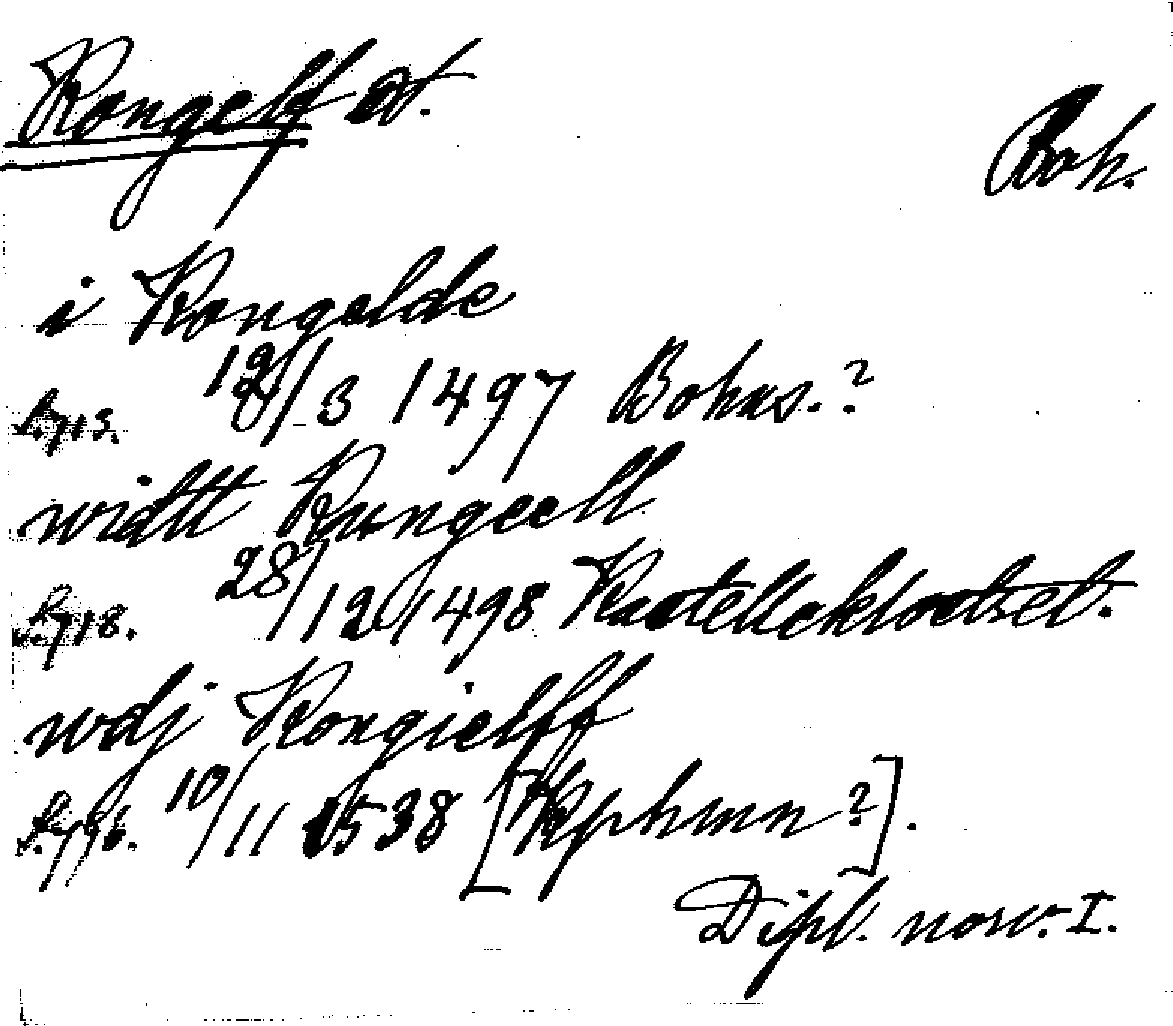 Kongelf st.
Boh.
i Kongelde
S. 713. 12/3 1497 Bohus.?
widtt Kungeell
S. 718. 28/12 1498 Kastelleklostret.
wdj Kongielff
S. 796. 10/11 1538 [Kphmn?].
Dipl. norv. I.